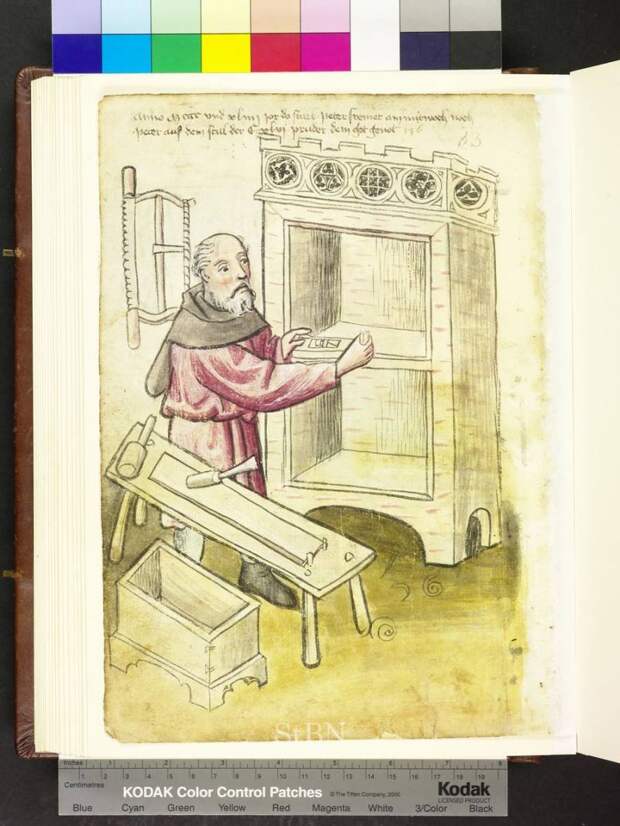 Anno M cccc und xliiii jor do starb peter screiner am mitwoch noch
peter auf dem stul der C xlvii pruder dem got genod
StBN
Inches 1 2 3 4 5 6 7 8
Centimetres 1 2 3 4 5 6 7 8 9 10 11 12 13 14 15 16 17 18 19
KODAK Color Control Patches © The Tiffen Company, 2000
Kodak
LICENSED PRODUCT
Blue Cyan Green Yellow Red Magenta White 3/Color Black